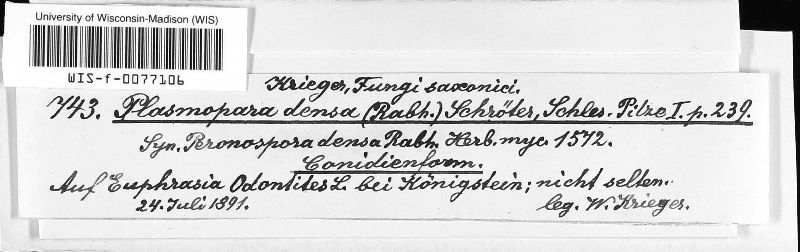 University of Wisconsin-Madison (WIS)
WIS-f-0077106
Krieger, Fungi saxonici.
743. Plasmopara densa (Rabh.) Schröter, Schles. Pilze I. p. 239.
Syn. Peronospora densa Rabh. Herb. myc. 1572.
Conidienform.
Auf Euphrasia Odontites L. bei Königstein; nicht selten.
24. Juli 1891. leg. W. Krieger.